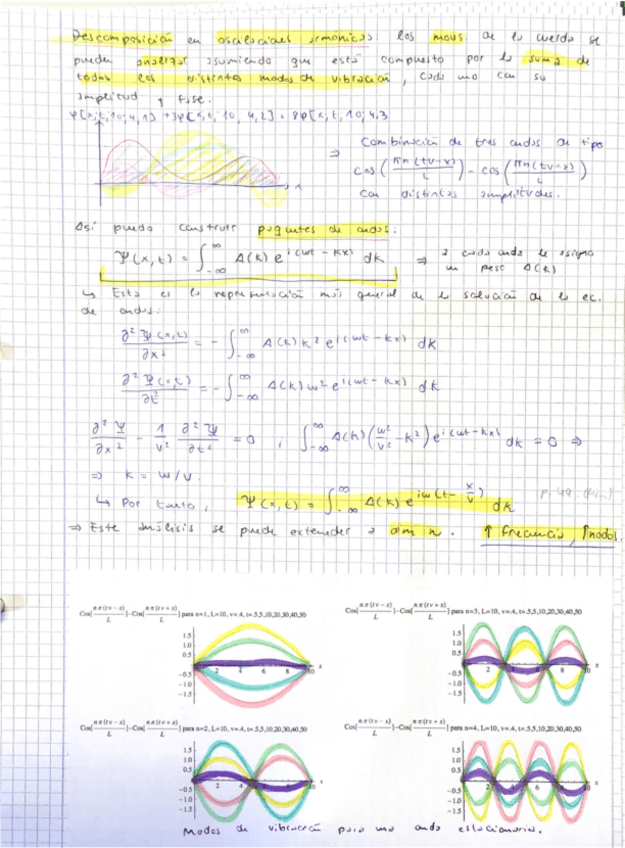 Descomposición en oscilaciones armónicas: los movs. de la cuerda se
pueden analizar asumiendo que está compuesto por la suma de
todos los distintos modos de vibración, cada uno con su
amplitud y fase.
φ[x,t,10,4,1] + 3φ[x,t,10,4,2] + 8φ[x,t,10,4,3
x
⇒ Combinación de tres ondas de tipo
cos(πn(tv-x)/L) - cos(πn(tv+x)/L)
con distintas amplitudes.
Así puedo construir paquetes de ondas:
Ψ(x,t) = ∫_{-∞}^{∞} A(k) e^{i(wt-kx)} dk ⇒ a cada onda le asigno
un peso A(k)
↳ Esta es la representación más general de la solución de la ec.
de ondas:
∂²Ψ(x,t)/∂x² = - ∫_{-∞}^{∞} A(k) k² e^{i(wt-kx)} dk
∂²Ψ(x,t)/∂t² = - ∫_{-∞}^{∞} A(k) w² e^{i(wt-kx)} dk
∂²Ψ/∂x² - 1/v² ∂²Ψ/∂t² = 0 , ∫_{-∞}^{∞} A(k) (w²/v² - k²) e^{i(wt-kx)} dk = 0 ⇒
⇒ k = w/v.
↳ Por tanto, Ψ(x,t) = ∫_{-∞}^{∞} A(k) e^{iw(t-x/v)} dk
⇒ Este análisis se puede extender a dim n. ↑ frecuencia, ↑nodos.
Cos[nπ(tv-x)/L]-Cos[nπ(tv+x)/L] para n=1, L=10, v=.4, t=.5,5,10,20,30,40,50
Cos[nπ(tv-x)/L]-Cos[nπ(tv+x)/L] para n=3, L=10, v=.4, t=.5,5,10,20,30,40,50
Cos[nπ(tv-x)/L]-Cos[nπ(tv+x)/L] para n=2, L=10, v=.4, t=.5,5,10,20,30,40,50
Cos[nπ(tv-x)/L]-Cos[nπ(tv+x)/L] para n=4, L=10, v=.4, t=.5,5,10,20,30,40,50
Modos de vibración para una onda estacionaria.